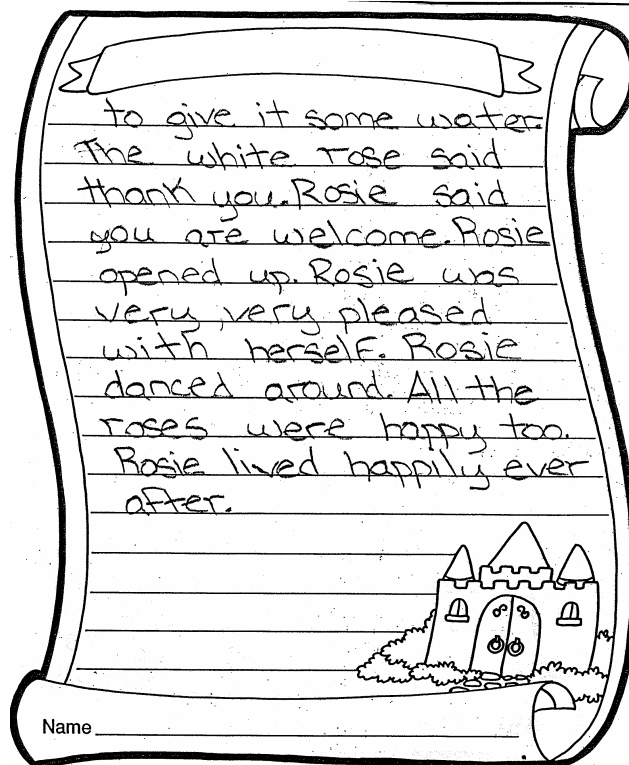 to give it some water.
The white rose said
thank you. Rosie said
you are welcome. Rosie
opened up. Rosie was
very, very pleased
with herself. Rosie
danced around. All the
roses were happy too.
Rosie lived happily ever
after.
Name